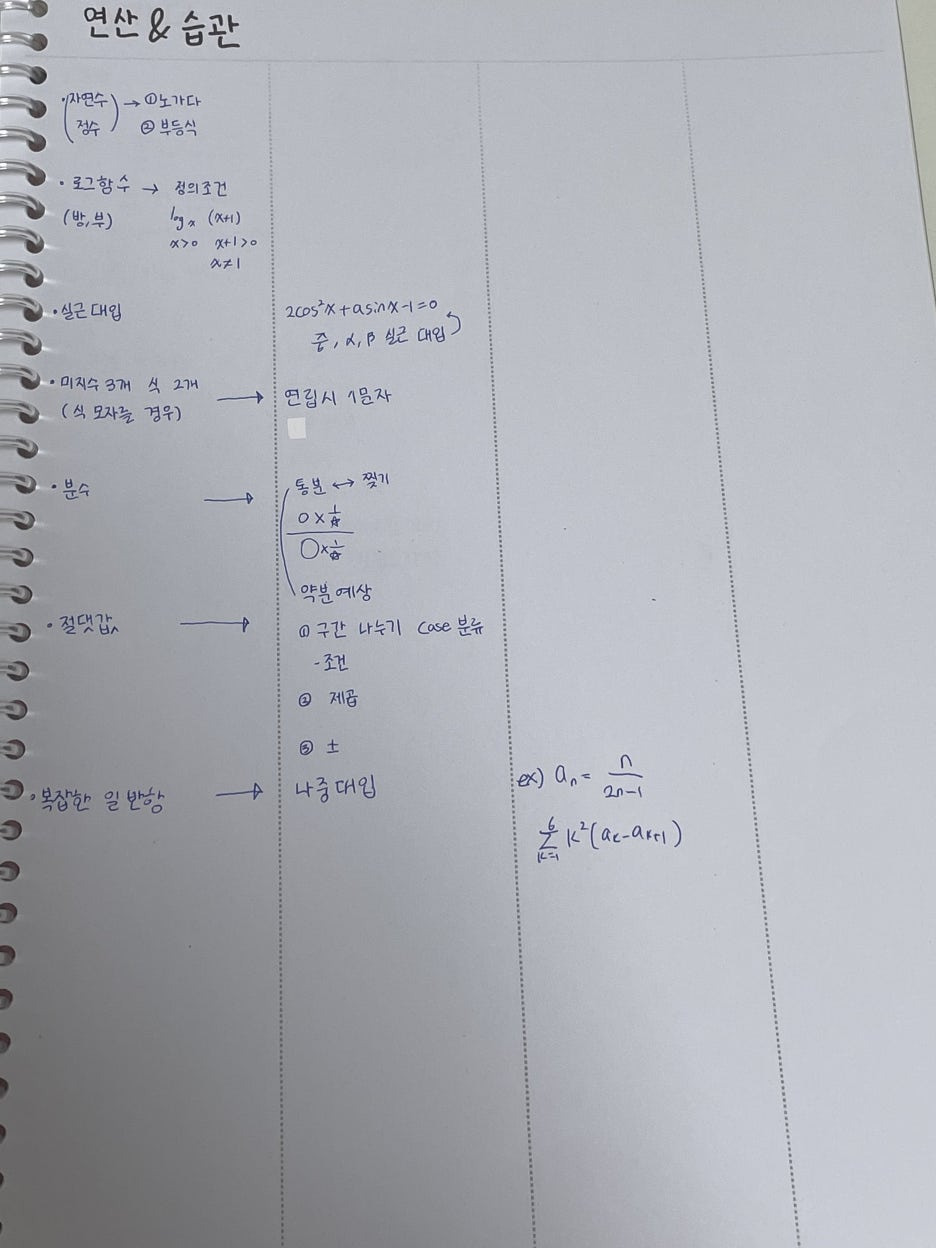 연산 & 습관
·(자연수 정수) → ① 노가다
② 부등식
· 로그함수 → 정의조건
(방, 부) log x (x+1)
x>0 x+1>0
x≠1
· 실근 대입 2cos²x+asinx-1=0
중, α, β 실근 대입
· 미지수 3개 식 2개 → 연립시 1문자
(식 모자를 경우)
· 분수 → 통분 ↔ 찢기
○×1/☆
○×1/☆
약분예상
· 절댓값 → ① 구간 나누기 case 분류
- 조건
② 제곱
③ ±
· 복잡한 일반항 → 나중대입 ex) aₙ = n/(2n-1)
6∑k=1 k²(aₖ-aₖ₊₁)